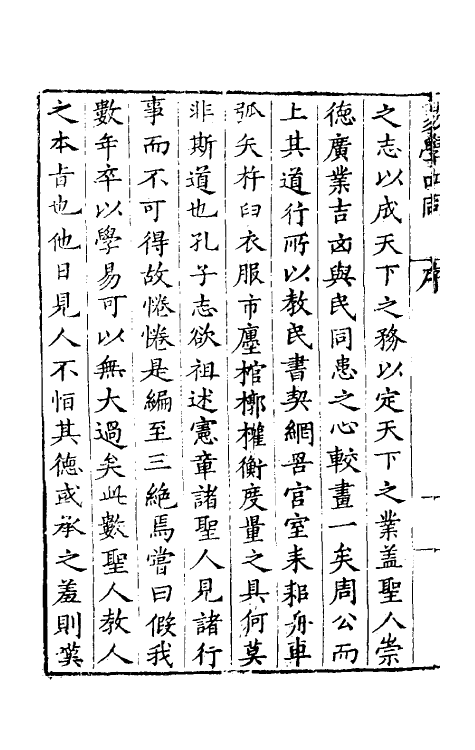 之志以成天下之務以定天下之業盖聖人崇
德廣業吉凶與民同患之心較畫一矣周公而
上其道行所以教民書契網罟宫室耒耜舟車
弧矢杵臼衣服市廛棺槨權衡度量之具何莫
非斯道也孔子志欲祖述憲章諸聖人見諸行
事而不可得故惓惓是編至三絶焉嘗曰假我
數年卒以學易可以無大過矣此數聖人教人
之本旨也他日見人不恒其德或承之羞則冀
序
一